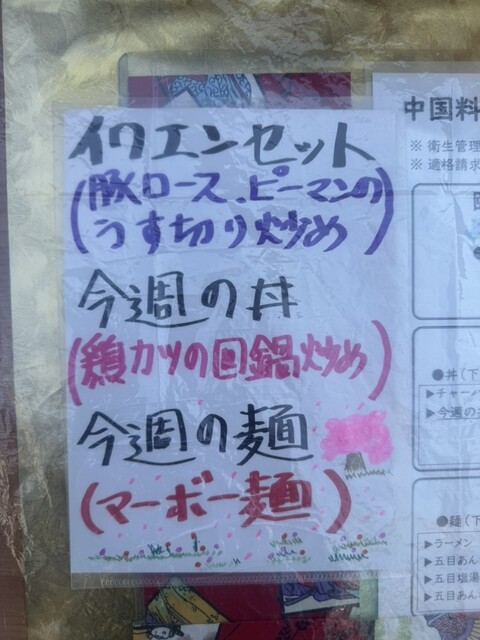 イワエンセット
(豚ロース、ピーマンの
うす切り炒め)
今週の丼
(鶏カツの回鍋炒め)
今週の麺
(マーボー麺)
中国料
※ 衛生管理
※ 適格請求
●丼(下
▶チャーハ
▶今週の丼
●麺(下
▶ラーメン
▶五目あん
▶五目塩湯
▶五目あん